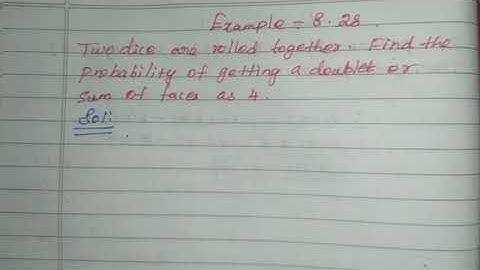 Example - 8.28.
Two dice are rolled together. Find the
probability of getting a doublet or
sum of faces as 4.
Sol: